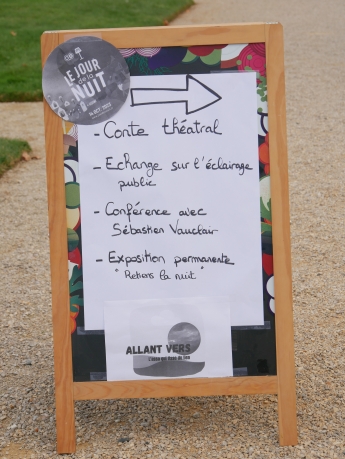 LE JOUR
de la
NUIT
- Conte théatral
- Echange sur l'éclairage
public
- Conférence avec
Sébastien Vauclair
- Exposition permanente
"Retiens la nuit"
ALLANT VERS